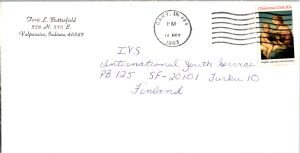 Fern L. Butterfield
Valparaiso, Indiana 46383
GARY, IN 464
PM
14 NOV
1983
Christmas USA 20c
I.Y.S
International Youth Service
PB 125 SF-20101 Turku 10
Finland